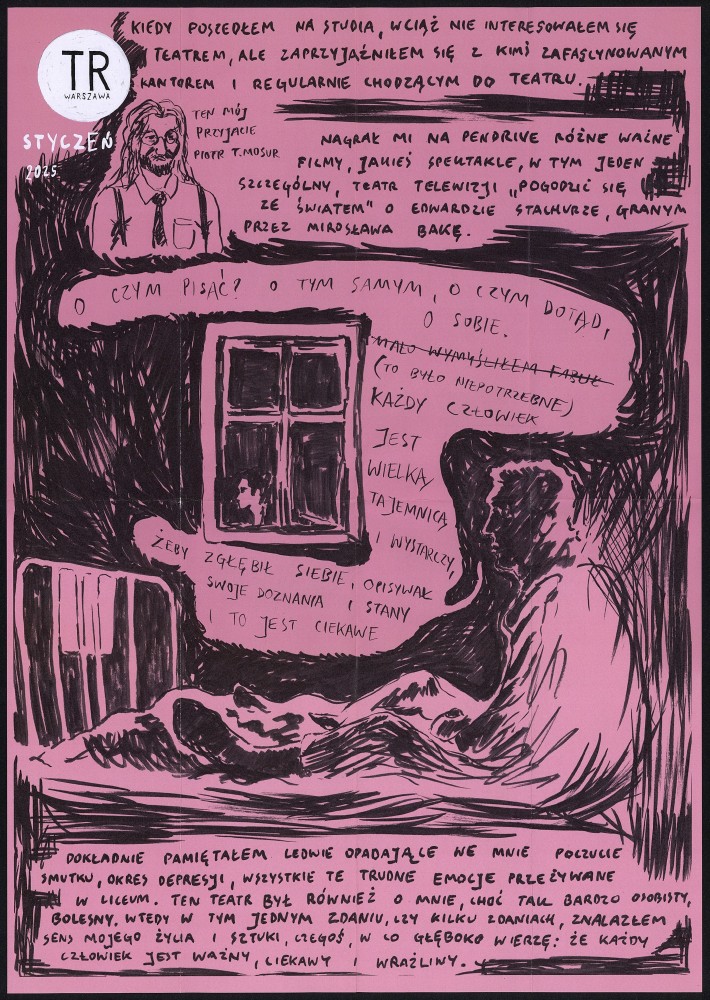 KIEDY POSZEDŁEM NA STUDIA, WCIĄŻ NIE INTERESOWAŁEM SIĘ
TEATREM, ALE ZAPRZYJAŹNIŁEM SIĘ Z KIMŚ ZAFASCYNOWANYM
KANTOREM I REGULARNIE CHODZĄCYM DO TEATRU.
TR
WARSZAWA
STYCZEŃ
2025
TEN MÓJ
PRZYJACIEL
PIOTR T. MOSUR
NAGRAŁ MI NA PENDRIVE RÓŻNE WAŻNE
FILMY, JAKIEŚ SPEKTAKLE, W TYM JEDEN
SZCZEGÓLNY, TEATR TELEWIZJI „POGODZIĆ SIĘ
ZE ŚWIATEM" O EDWARDZIE STACHURZE, GRANYM
PRZEZ MIROSŁAWA BAKĘ.
O CZYM PISAĆ? O TYM SAMYM, O CZYM DOTĄD,
O SOBIE.
MAŁO WYMYŚLIŁEM FABUŁ
(TO BYŁO NIEPOTRZEBNE)
KAŻDY CZŁOWIEK
JEST
WIELKĄ
TAJEMNICĄ
I WYSTARCZY,
ŻEBY ZGŁĘBIŁ SIEBIE, OPISYWAŁ
SWOJE DOZNANIA I STANY
I TO JEST CIEKAWE
DOKŁADNIE PAMIĘTAŁEM LEDWIE OPADAJĄCE WE MNIE POCZUCIE
SMUTKU, OKRES DEPRESJI, WSZYSTKIE TE TRUDNE EMOCJE PRZEŻYWANE
W LICEUM. TEN TEATR BYŁ RÓWNIEŻ O MNIE, CHOĆ TAK BARDZO OSOBISTY,
BOLESNY. WTEDY W TYM JEDNYM ZDANIU, CZY KILKU ZDANIACH, ZNALAZŁEM
SENS MOJEGO ŻYCIA I SZTUKI, CZEGOŚ, W CO GŁĘBOKO WIERZĘ: ŻE KAŻDY
CZŁOWIEK JEST WAŻNY, CIEKAWY I WRAŻLIWY.